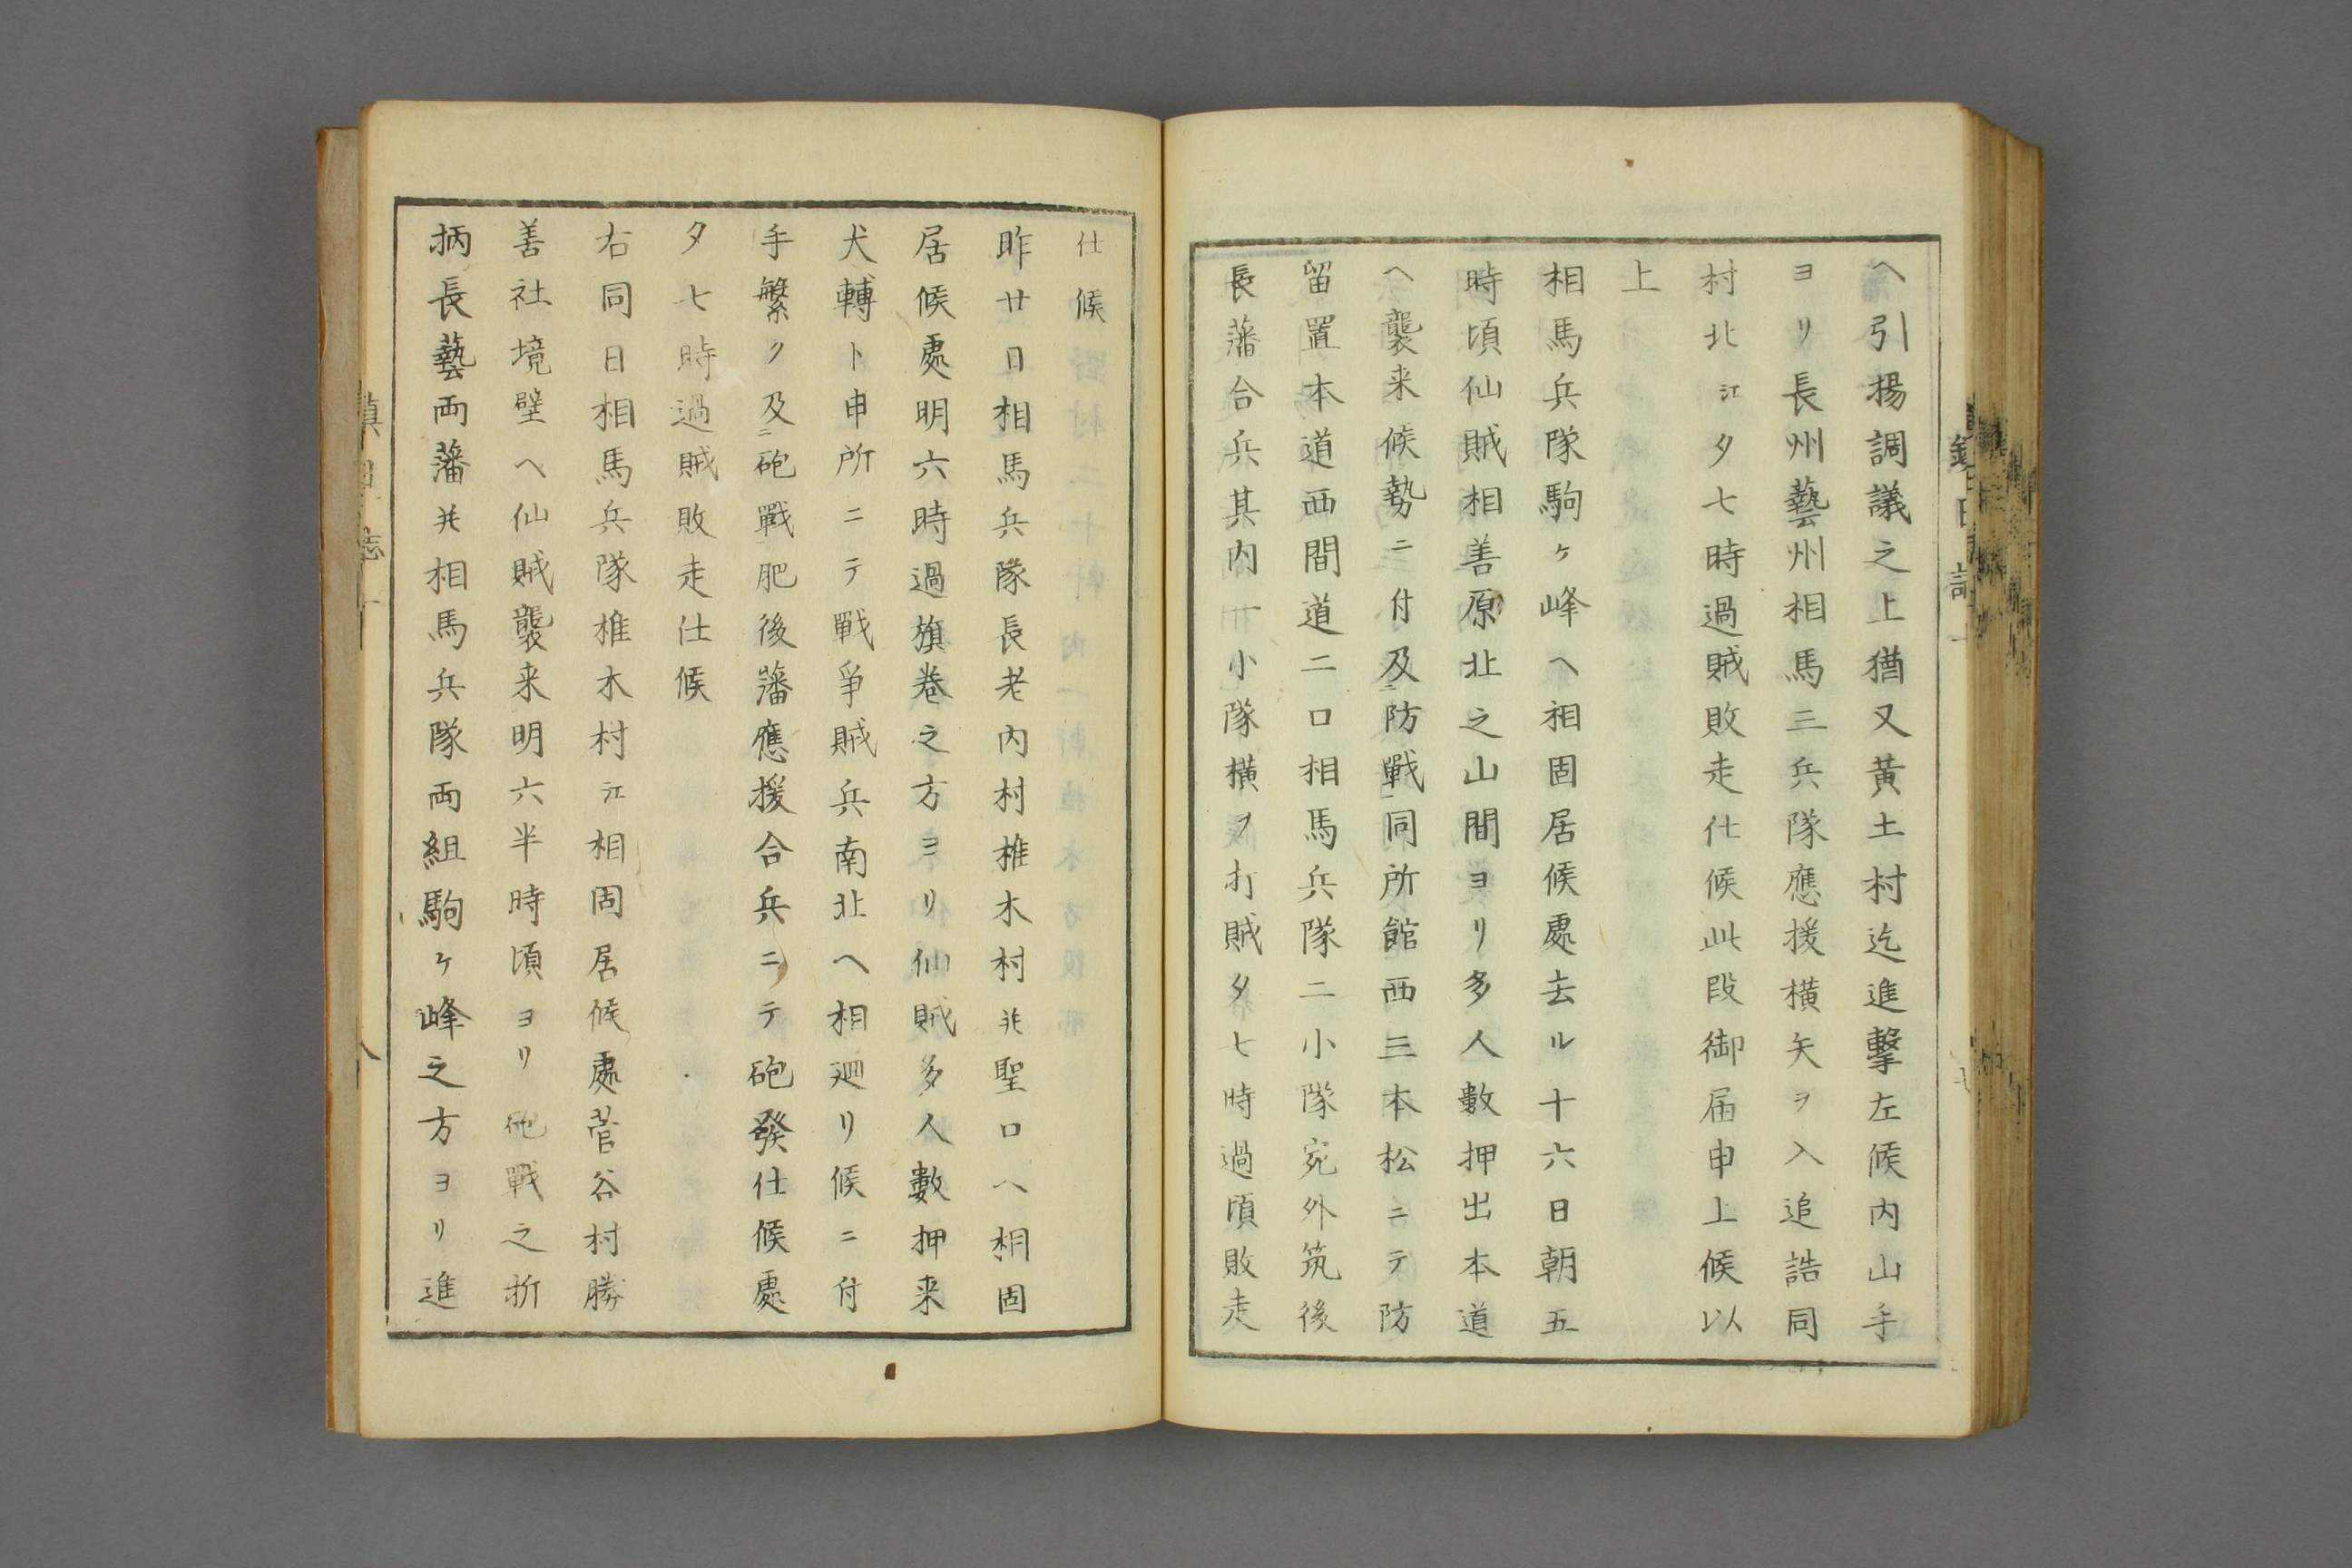 ヘ引揚調議之上猶又黄土村迄進撃左候内山手
ヨリ長州藝州相馬三兵隊應援横矢ヲ入追誥同
村北江夕七時過賊敗走仕候此段御届申上候以
上
相馬兵隊駒ヶ峰ヘ相固居候處去ル十六日朝五
時頃仙賊相善原北之山間ヨリ多人數押出本道
ヘ襲来候勢ニ付及ニ防戰一同所館西三本松ニテ防
留置本道西間道二口相馬兵隊二小隊宛外筑後
長藩合兵其内一小隊横ヲ打賊夕七時過頃敗走
仕候
昨廿日相馬兵隊長老内村椎木村并聖口ヘ相固
居候處明六時過旗巻之方ヨリ仙賊多人數押来
犬轉ト申所ニテ戰爭賊兵南北ヘ相廻リ候ニ付
手繁ク及ニ砲戰一肥後藩應援合兵ニテ砲發仕候處
夕七時過賊敗走仕候
右同日相馬兵隊椎木村江相固居候處菅谷村勝
善社境壁ヘ仙賊襲来明六半時頃ヨリ砲戰之折
柄長藝両藩并相馬兵隊両組駒ヶ峰之方ヨリ進